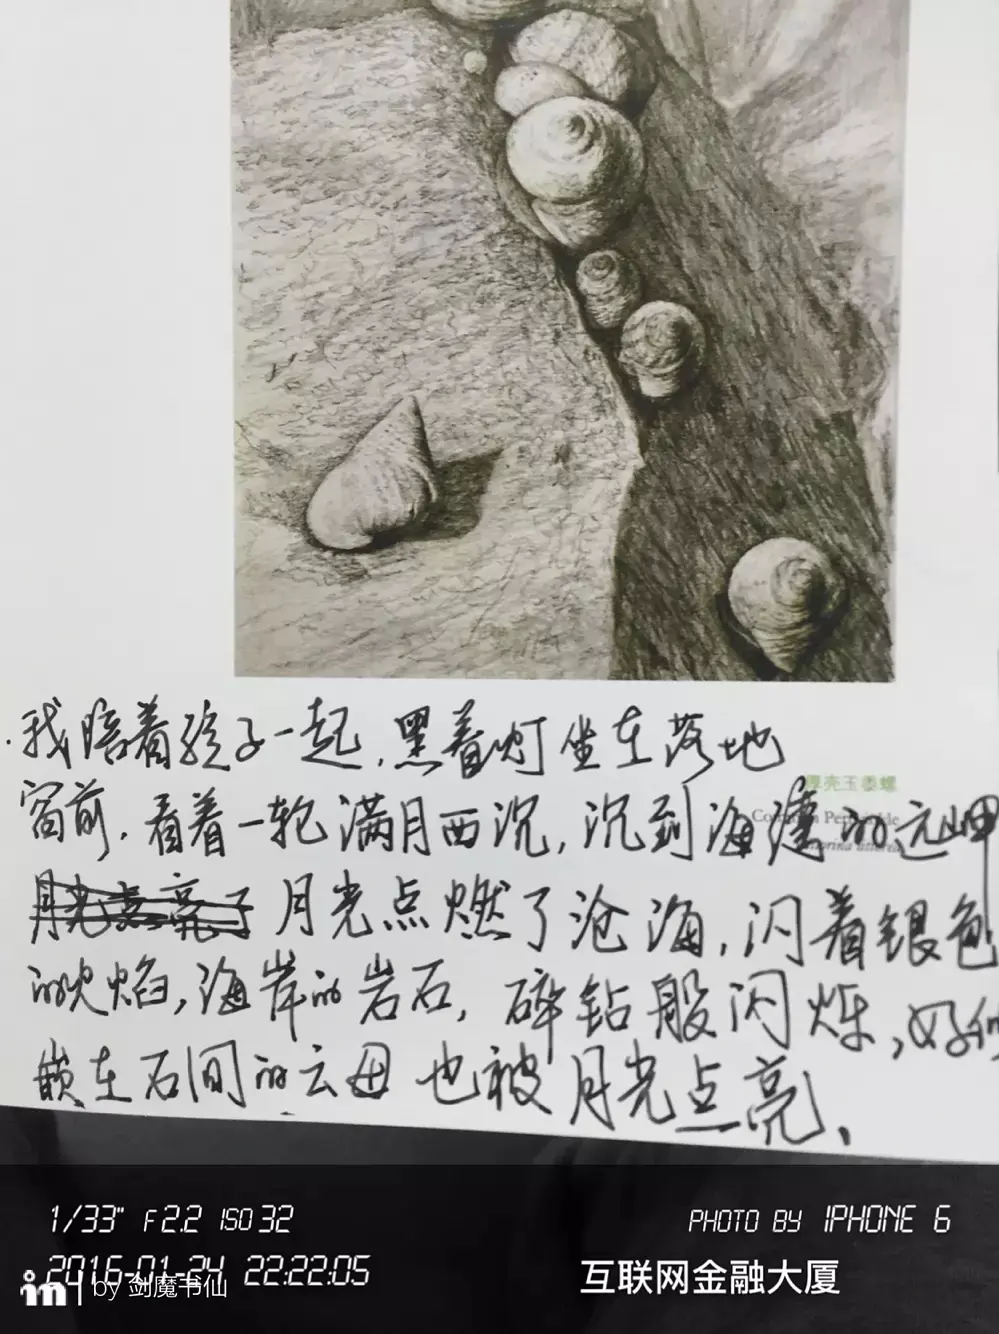 厚壳玉黍螺
我陪着孩子一起,黑着灯坐在落地
窗前,看着一轮满月西沉,沉到海湾的远岬
月光点亮了 月光点燃了沧海,闪着银色
的火焰,海岸的岩石,碎钻般闪烁,好似
嵌在石间的云母也被月光点亮、
1/33" F2.2 ISO 32
PHOTO BY IPHONE 6
2016-01-24 22:22:05
by 剑魔书仙
互联网金融大厦